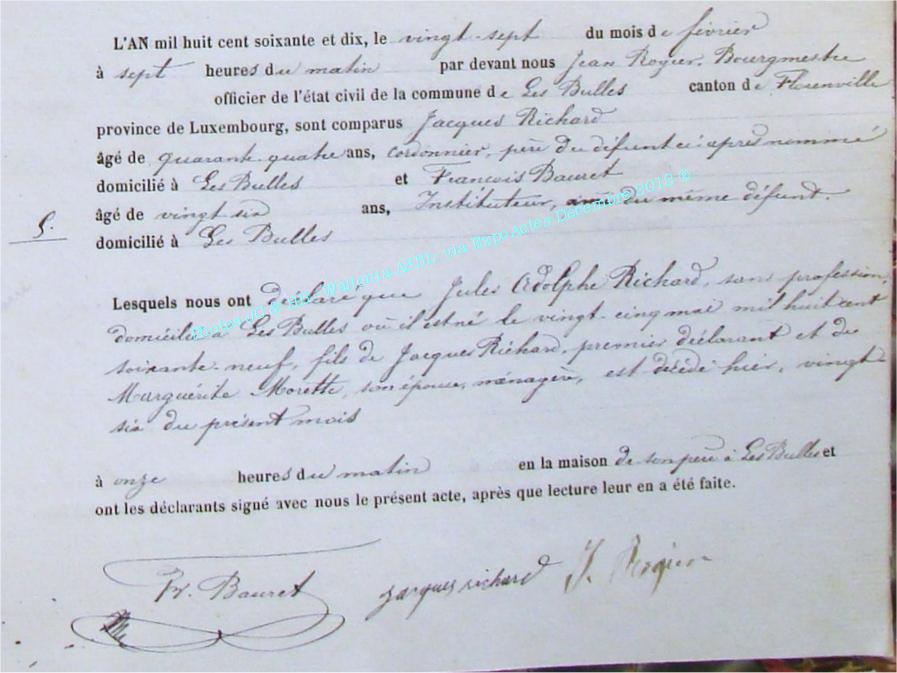 L'AN mil huit cent soixante et dix, le vingt-sept du mois de février
à sept heures du matin par devant nous Jean Rogier, Bourgmestre
officier de l'état civil de la commune de Les Bulles canton de Florenville
province de Luxembourg, sont comparus Jacques Richard
âgé de quarante-quatre ans, cordonnier, père du défunt ci-après nommé
domicilié à Les Bulles et François Bauret
5.
âgé de vingt six ans, Instituteur, ami du même défunt.
domicilié à Les Bulles
Lesquels nous ont déclaré que Jules Adolphe Richard, sans profession,
domicilié à Les Bulles où il est né le vingt-cinq mai mil huit cent
soixante-neuf, fils de Jacques Richard, premier déclarant et de
Marguérite Morette, son épouse, ménagère, est décédé hier, vingt
six du présent mois
à onze heures du matin en la maison de son père à Les Bulles et
ont les déclarants signé avec nous le présent acte, après que lecture leur en a été faite.
Fr. Bauret jacques richard J. Rogier